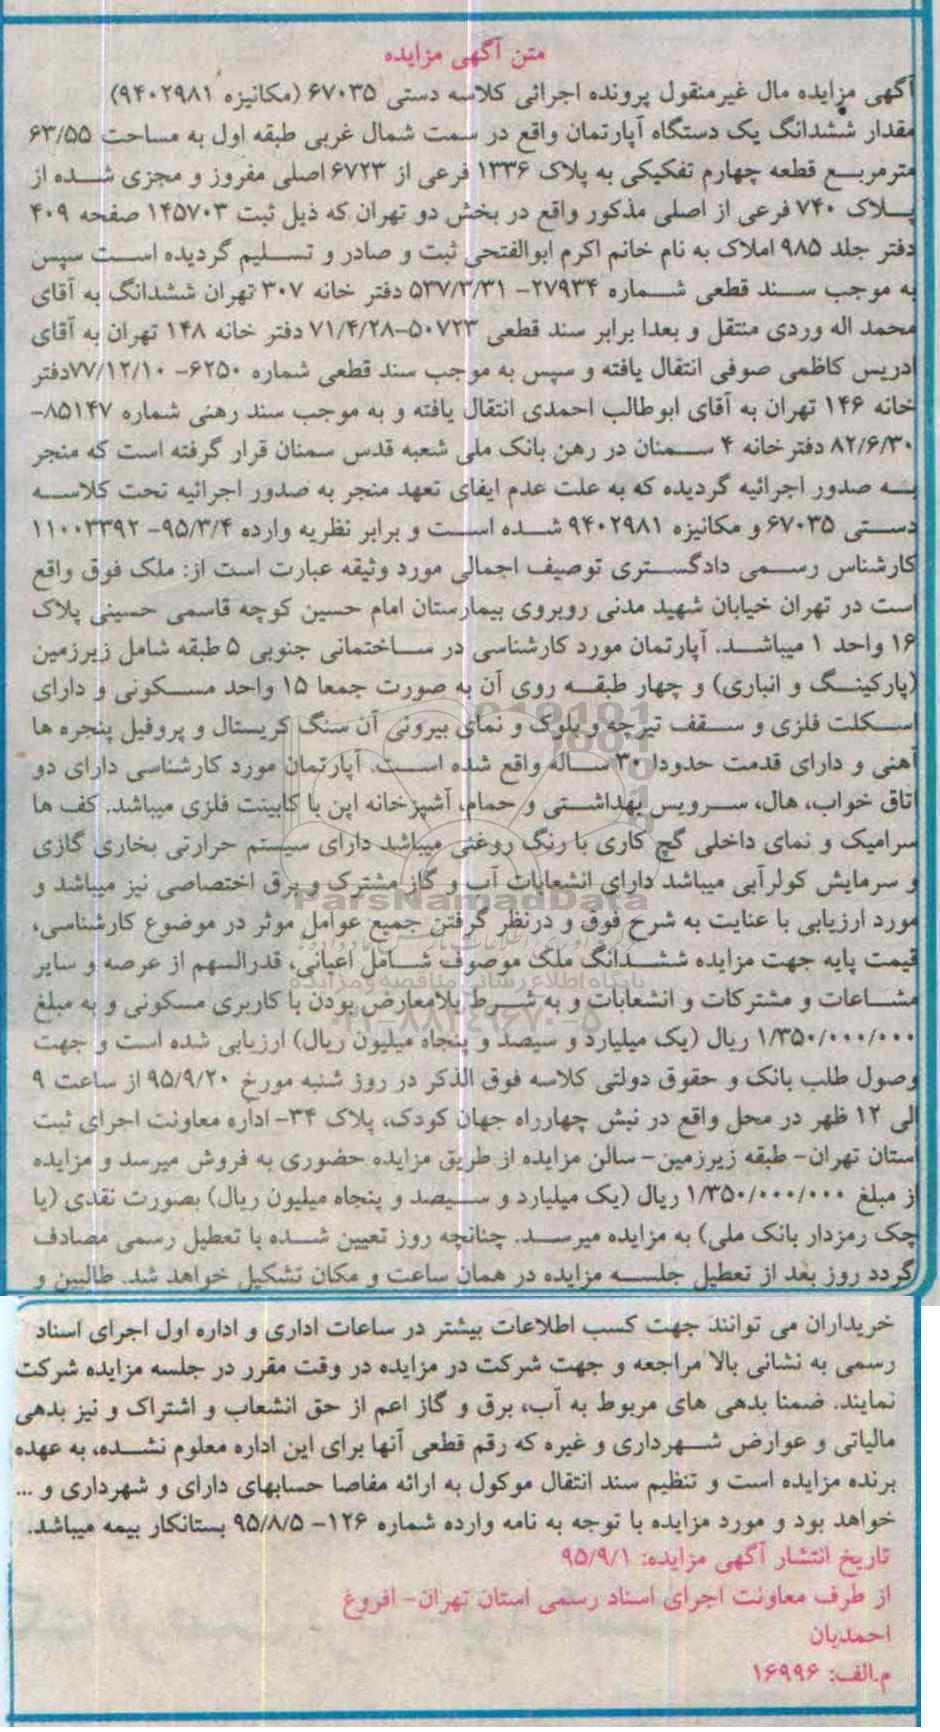 متن آگهی مزایده
آگهی مزایده مال غیرمنقول پرونده اجرائی کلاسه دستی ۶۷۰۳۵ (مکانیزه ۹۴۰۲۹۸۱)
مقدار ششدانگ یک دستگاه آپارتمان واقع در سمت شمال غربی طبقه اول به مساحت ۶۳/۵۵
مترمربع قطعه چهارم تفکیکی به پلاک ۱۳۳۶ فرعی از ۶۷۲۳ اصلی مفروز و مجزی شده از
پلاک ۷۴۰ فرعی از اصلی مذکور واقع در بخش دو تهران که ذیل ثبت ۱۴۵۷۰۳ صفحه ۴۰۹
دفتر جلد ۹۸۵ املاک به نام خانم اکرم ابوالفتحی ثبت و صادر و تسلیم گردیده است سپس
به موجب سند قطعی شماره ۲۷۹۳۴- ۵۳۷/۳/۳۱ دفتر خانه ۳۰۷ تهران ششدانگ به آقای
محمد اله وردی منتقل و بعدا برابر سند قطعی ۵۰۷۲۳-۷۱/۴/۲۸ دفتر خانه ۱۴۸ تهران به آقای
ادریس کاظمی صوفی انتقال یافته و سپس به موجب سند قطعی شماره ۶۲۵۰- ۷۷/۱۲/۱۰دفتر
خانه ۱۴۶ تهران به آقای ابوطالب احمدی انتقال یافته و به موجب سند رهنی شماره ۸۵۱۴۷-
۸۲/۶/۳۰ دفترخانه ۴ سمنان در رهن بانک ملی شعبه قدس سمنان قرار گرفته است که منجر
به صدور اجرائیه گردیده که به علت عدم ایفای تعهد منجر به صدور اجرائیه تحت کلاسه
دستی ۶۷۰۳۵ و مکانیزه ۹۴۰۲۹۸۱ شده است و برابر نظریه وارده ۹۵/۳/۴- ۱۱۰۰۳۳۹۲
کارشناس رسمی دادگستری توصیف اجمالی مورد وثیقه عبارت است از: ملک فوق واقع
است در تهران خیابان شهید مدنی روبروی بیمارستان امام حسین کوچه قاسمی حسینی پلاک
۱۶ واحد ۱ میباشد. آپارتمان مورد کارشناسی در ساختمانی جنوبی ۵ طبقه شامل زیرزمین
(پارکینگ و انباری) و چهار طبقه روی آن به صورت جمعا ۱۵ واحد مسکونی و دارای
اسکلت فلزی و سقف تیرچه و بلوک و نمای بیرونی آن سنگ کریستال و پروفیل پنجره ها
آهنی و دارای قدمت حدودا ۳۰ ساله واقع شده است. آپارتمان مورد کارشناسی دارای دو
اتاق خواب، هال، سرویس بهداشتی و حمام، آشپزخانه اپن با کابینت فلزی میباشد. کف ها
سرامیک و نمای داخلی گچ کاری با رنگ روغنی میباشد دارای سیستم حرارتی بخاری گازی
و سرمایش کولرآبی میباشد دارای انشعابات آب و گاز مشترک و برق اختصاصی نیز میباشد و
ParsNamadData
مورد ارزیابی با عنایت به شرح فوق و درنظر گرفتن جمیع عوامل موثر در موضوع کارشناسی،
قیمت پایه جهت مزایده ششدانگ ملک موصوف شامل اعیانی، قدرالسهم از عرصه و سایر
پایگاه اطلاع رسانی مناقصه و مزایده
مشاعات و مشترکات و انشعابات و به شرط بلامعارض بودن با کاربری مسکونی و به مبلغ
۰۲۱-۸۸۳۴۹۶۷۰-۵
۱/۳۵۰/۰۰۰/۰۰۰ ریال (یک میلیارد و سیصد و پنجاه میلیون ریال) ارزیابی شده است و جهت
وصول طلب بانک و حقوق دولتی کلاسه فوق الذکر در روز شنبه مورخ ۹۵/۹/۲۰ از ساعت ۹
الی ۱۲ ظهر در محل واقع در نبش چهارراه جهان کودک، پلاک ۳۴- اداره معاونت اجرای ثبت
استان تهران- طبقه زیرزمین- سالن مزایده از طریق مزایده حضوری به فروش میرسد و مزایده
از مبلغ ۱/۳۵۰/۰۰۰/۰۰۰ ریال (یک میلیارد و سیصد و پنجاه میلیون ریال) بصورت نقدی (یا
چک رمزدار بانک ملی) به مزایده میرسد. چنانچه روز تعیین شده با تعطیل رسمی مصادف
گردد روز بعد از تعطیل جلسه مزایده در همان ساعت و مکان تشکیل خواهد شد. طالبین و
خریداران می توانند جهت کسب اطلاعات بیشتر در ساعات اداری و اداره اول اجرای اسناد
رسمی به نشانی بالا مراجعه و جهت شرکت در مزایده در وقت مقرر در جلسه مزایده شرکت
نمایند. ضمنا بدهی های مربوط به آب، برق و گاز اعم از حق انشعاب و اشتراک و نیز بدهی
مالیاتی و عوارض شهرداری و غیره که رقم قطعی آنها برای این اداره معلوم نشده، به عهده
برنده مزایده است و تنظیم سند انتقال موکول به ارائه مفاصا حسابهای دارای و شهرداری و ...
خواهد بود و مورد مزایده با توجه به نامه وارده شماره ۱۲۶- ۹۵/۸/۵ بستانکار بیمه میباشد.
تاریخ انتشار آگهی مزایده: ۹۵/۹/۱
از طرف معاونت اجرای اسناد رسمی استان تهران- افروغ
احمدیان
م.الف: ۱۶۹۹۶